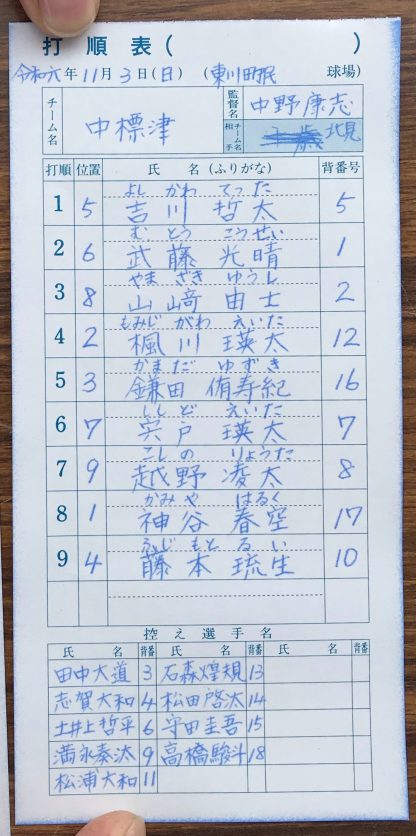 打順表( )
令和六年11月3日(日) (東川町民 球場)
チーム名 中標津 監督名 中野康志
相手チーム名 北見
打順 位置 氏名(ふりがな) 背番号
よし かわ てった
1 5 吉川哲太 5
むとう こうせい
2 6 武藤光晴 1
やま ざき ゆうし
3 8 山﨑由士 2
もみじ がわ えいた
4 2 楓川瑛太 12
かま だ ゆずき
5 3 鎌田侑寿紀 16
ししど えいた
6 7 宍戸瑛太 7
こしの りょうた
7 9 越野凌太 8
かみや はるく
8 1 神谷春空 17
ふじ もと るい
9 4 藤本琉生 10
控え選手名
氏名 背番 氏名 背番 氏名 背番
田中大道 3 石森煌規 13
志賀大和 4 松田啓汰 14
土井上哲平 6 守田圭吾 15
満永奏汰 9 高橋駿斗 18
松浦大和 11